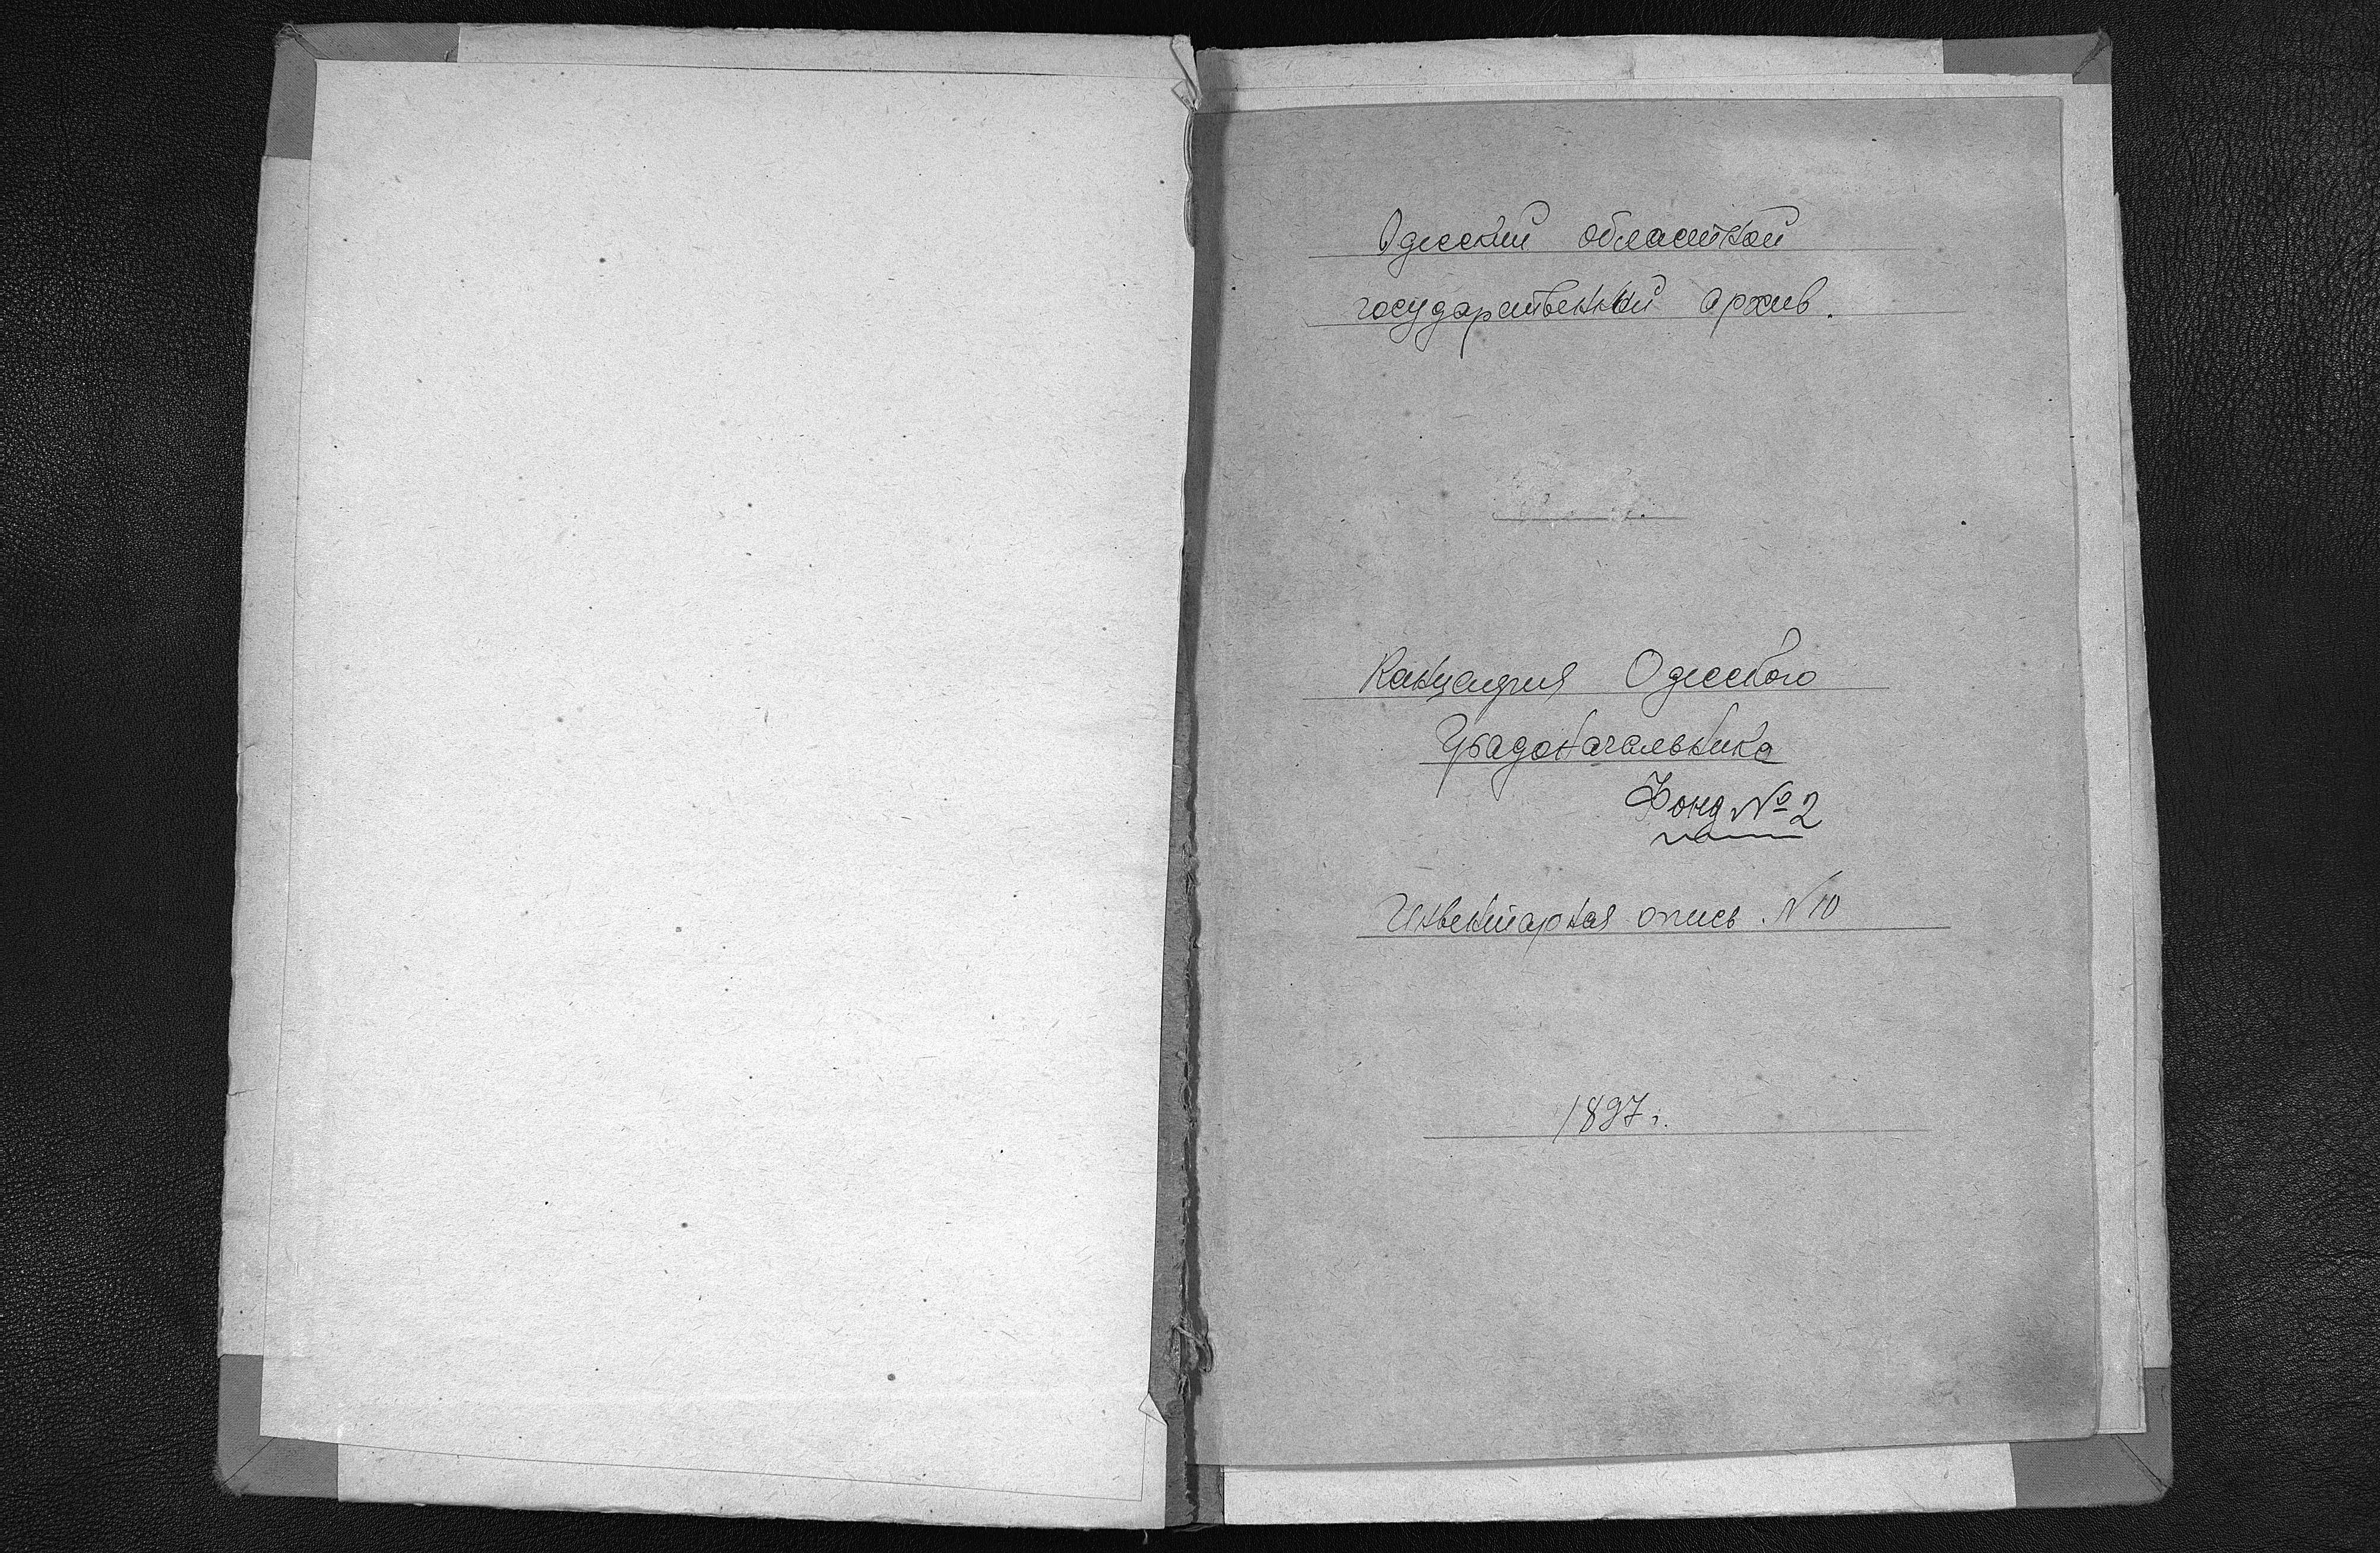 Одесский областной
государственный архив.
Канцелярия Одесского
Градоначальника
Фонд № 2
Инвентарная опись. N 10
1897 г.